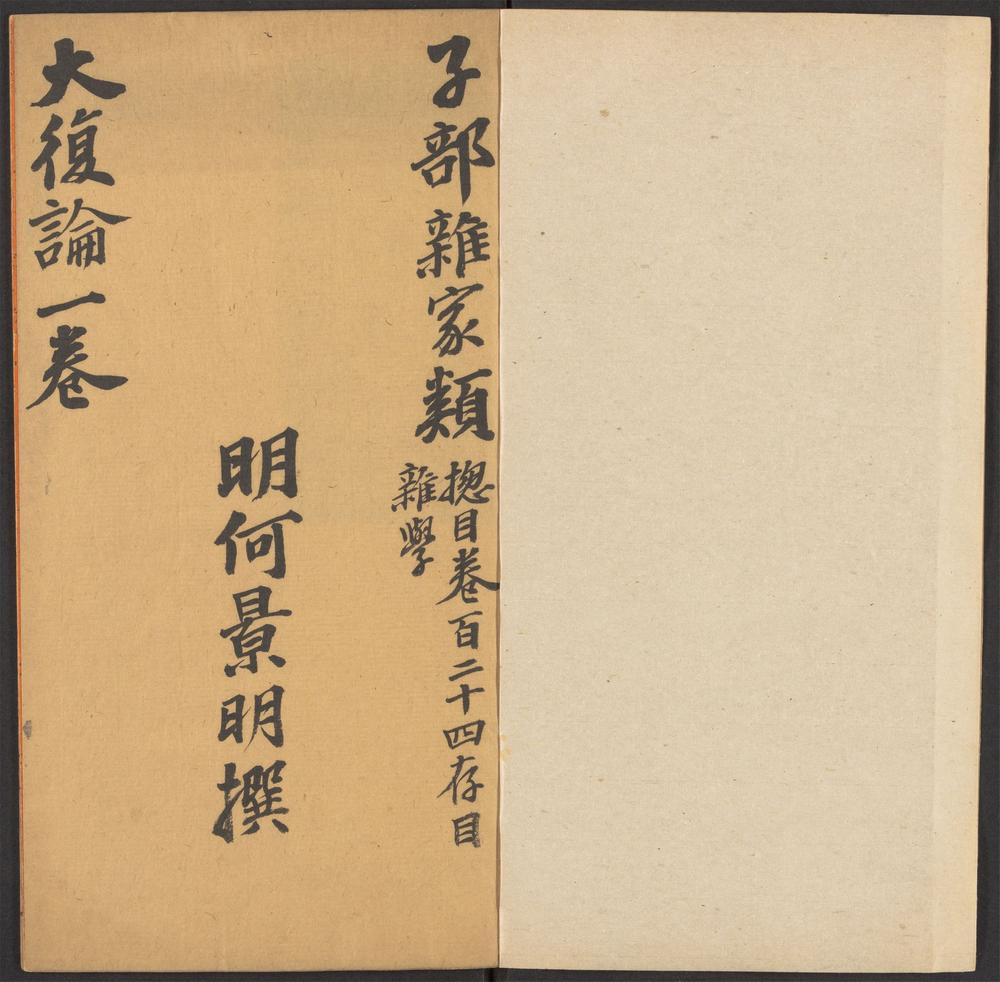 子部雜家類
揔目卷百二十四存目
雜學
明何景明撰
大復論一卷